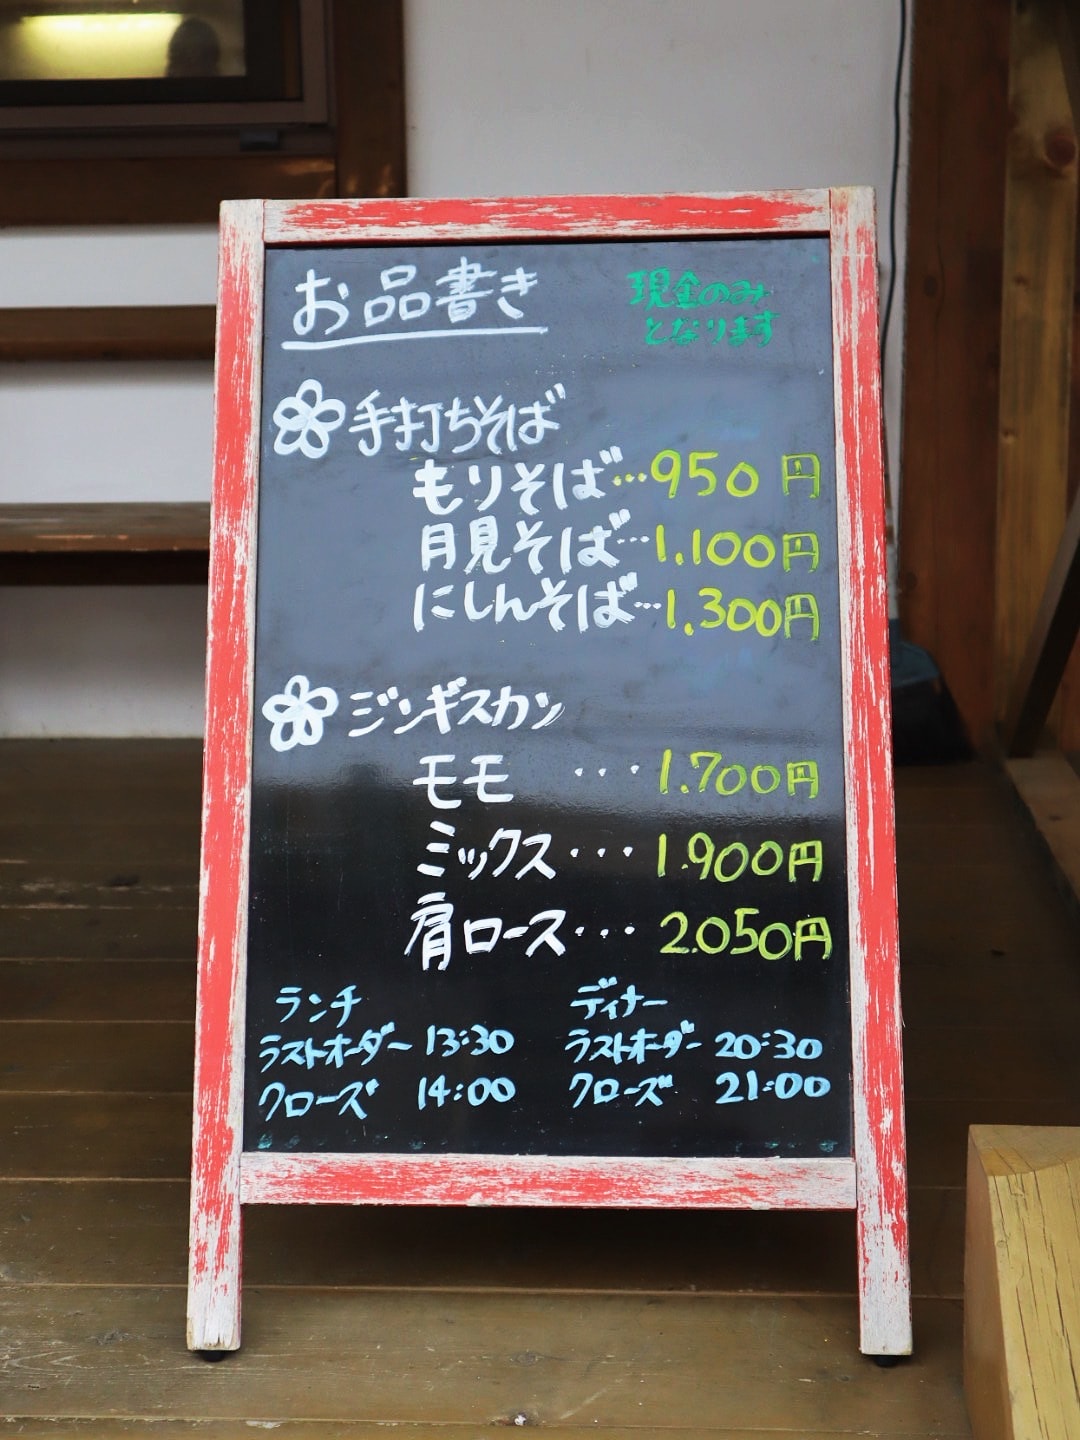 お品書き
現金のみ
となります
手打ちそば
もりそば…950円
月見そば…1.100円
にしんそば…1.300円
ジンギスカン
モモ ・・・1.700円
ミックス・・・1.900円
肩ロース・・・2.050円
ランチ
ラストオーダー 13:30
クローズ 14:00
ディナー
ラストオーダー 20:30
クローズ 21:00